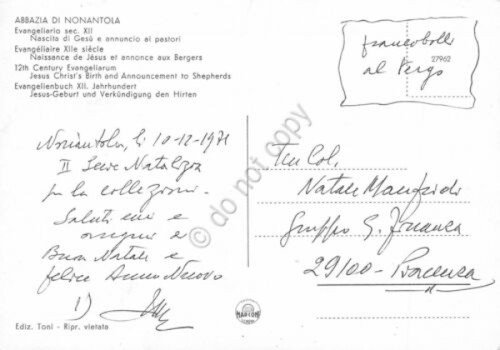 ABBAZIA DI NONANTOLA
Evangeliario sec. XII
Nascita di Gesù e annuncio ai pastori
Evangéliaire XIIe siècle
Naissance de Jésus et annonce aux Bergers
12th Century Evangeliarum
Jesus Christ's Birth and Announcement to Shepherds
Evangelienbuch XII. Jahrhundert
Jesus-Geburt und Verkündigung den Hirten
francobolli
27962
al Tergo
Nonantola, li 10-12-1971
II Serie Natalizia
per la collezione.
Saluti cari e
auguri e
Buon Natale e
felice Anno Nuovo
1)
Ten Col.
Natale Manfredi
Gruppo G. Finanza
29100 - Piacenza
do not copy
MARCOM
Ediz. Toni - Ripr. vietata